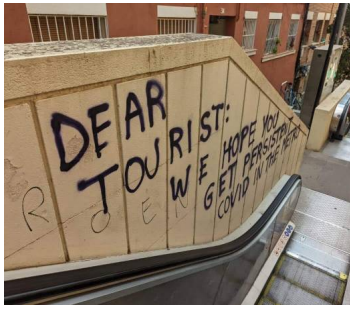 DEAR
TOURIST:
WE HOPE YOU
GET PERSISTENT
COVID IN THE METRO